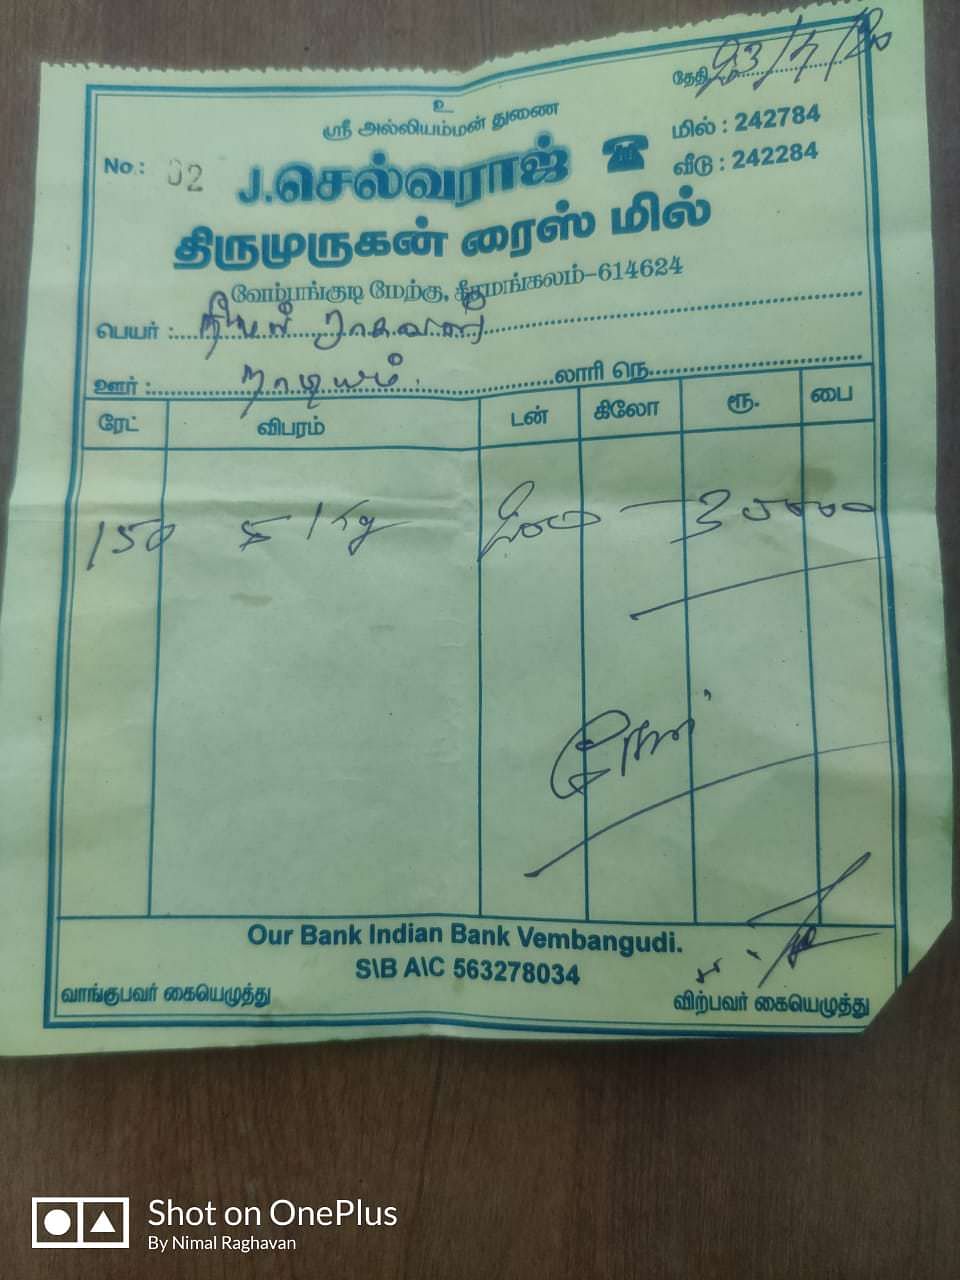 தேதி 23/7/20
உ
ஸ்ரீ அல்லியம்மன் துணை
No : 02
J.செல்வராஜ் ☎
மில் : 242784
வீடு : 242284
திருமுருகன் ரைஸ் மில்
வேம்பங்குடி மேற்கு, கீரமங்கலம்-614624
பெயர் : நிமல் ராகவன்
ஊர் : நாடியம் லாரி நெ.
ரேட் விபரம் டன் கிலோ ரூ. பை
150 5 1 Kg 200 - 30000
Our Bank Indian Bank Vembangudi.
S\B A\C 563278034
வாங்குபவர் கையெழுத்து விற்பவர் கையெழுத்து
Shot on OnePlus
By Nimal Raghavan